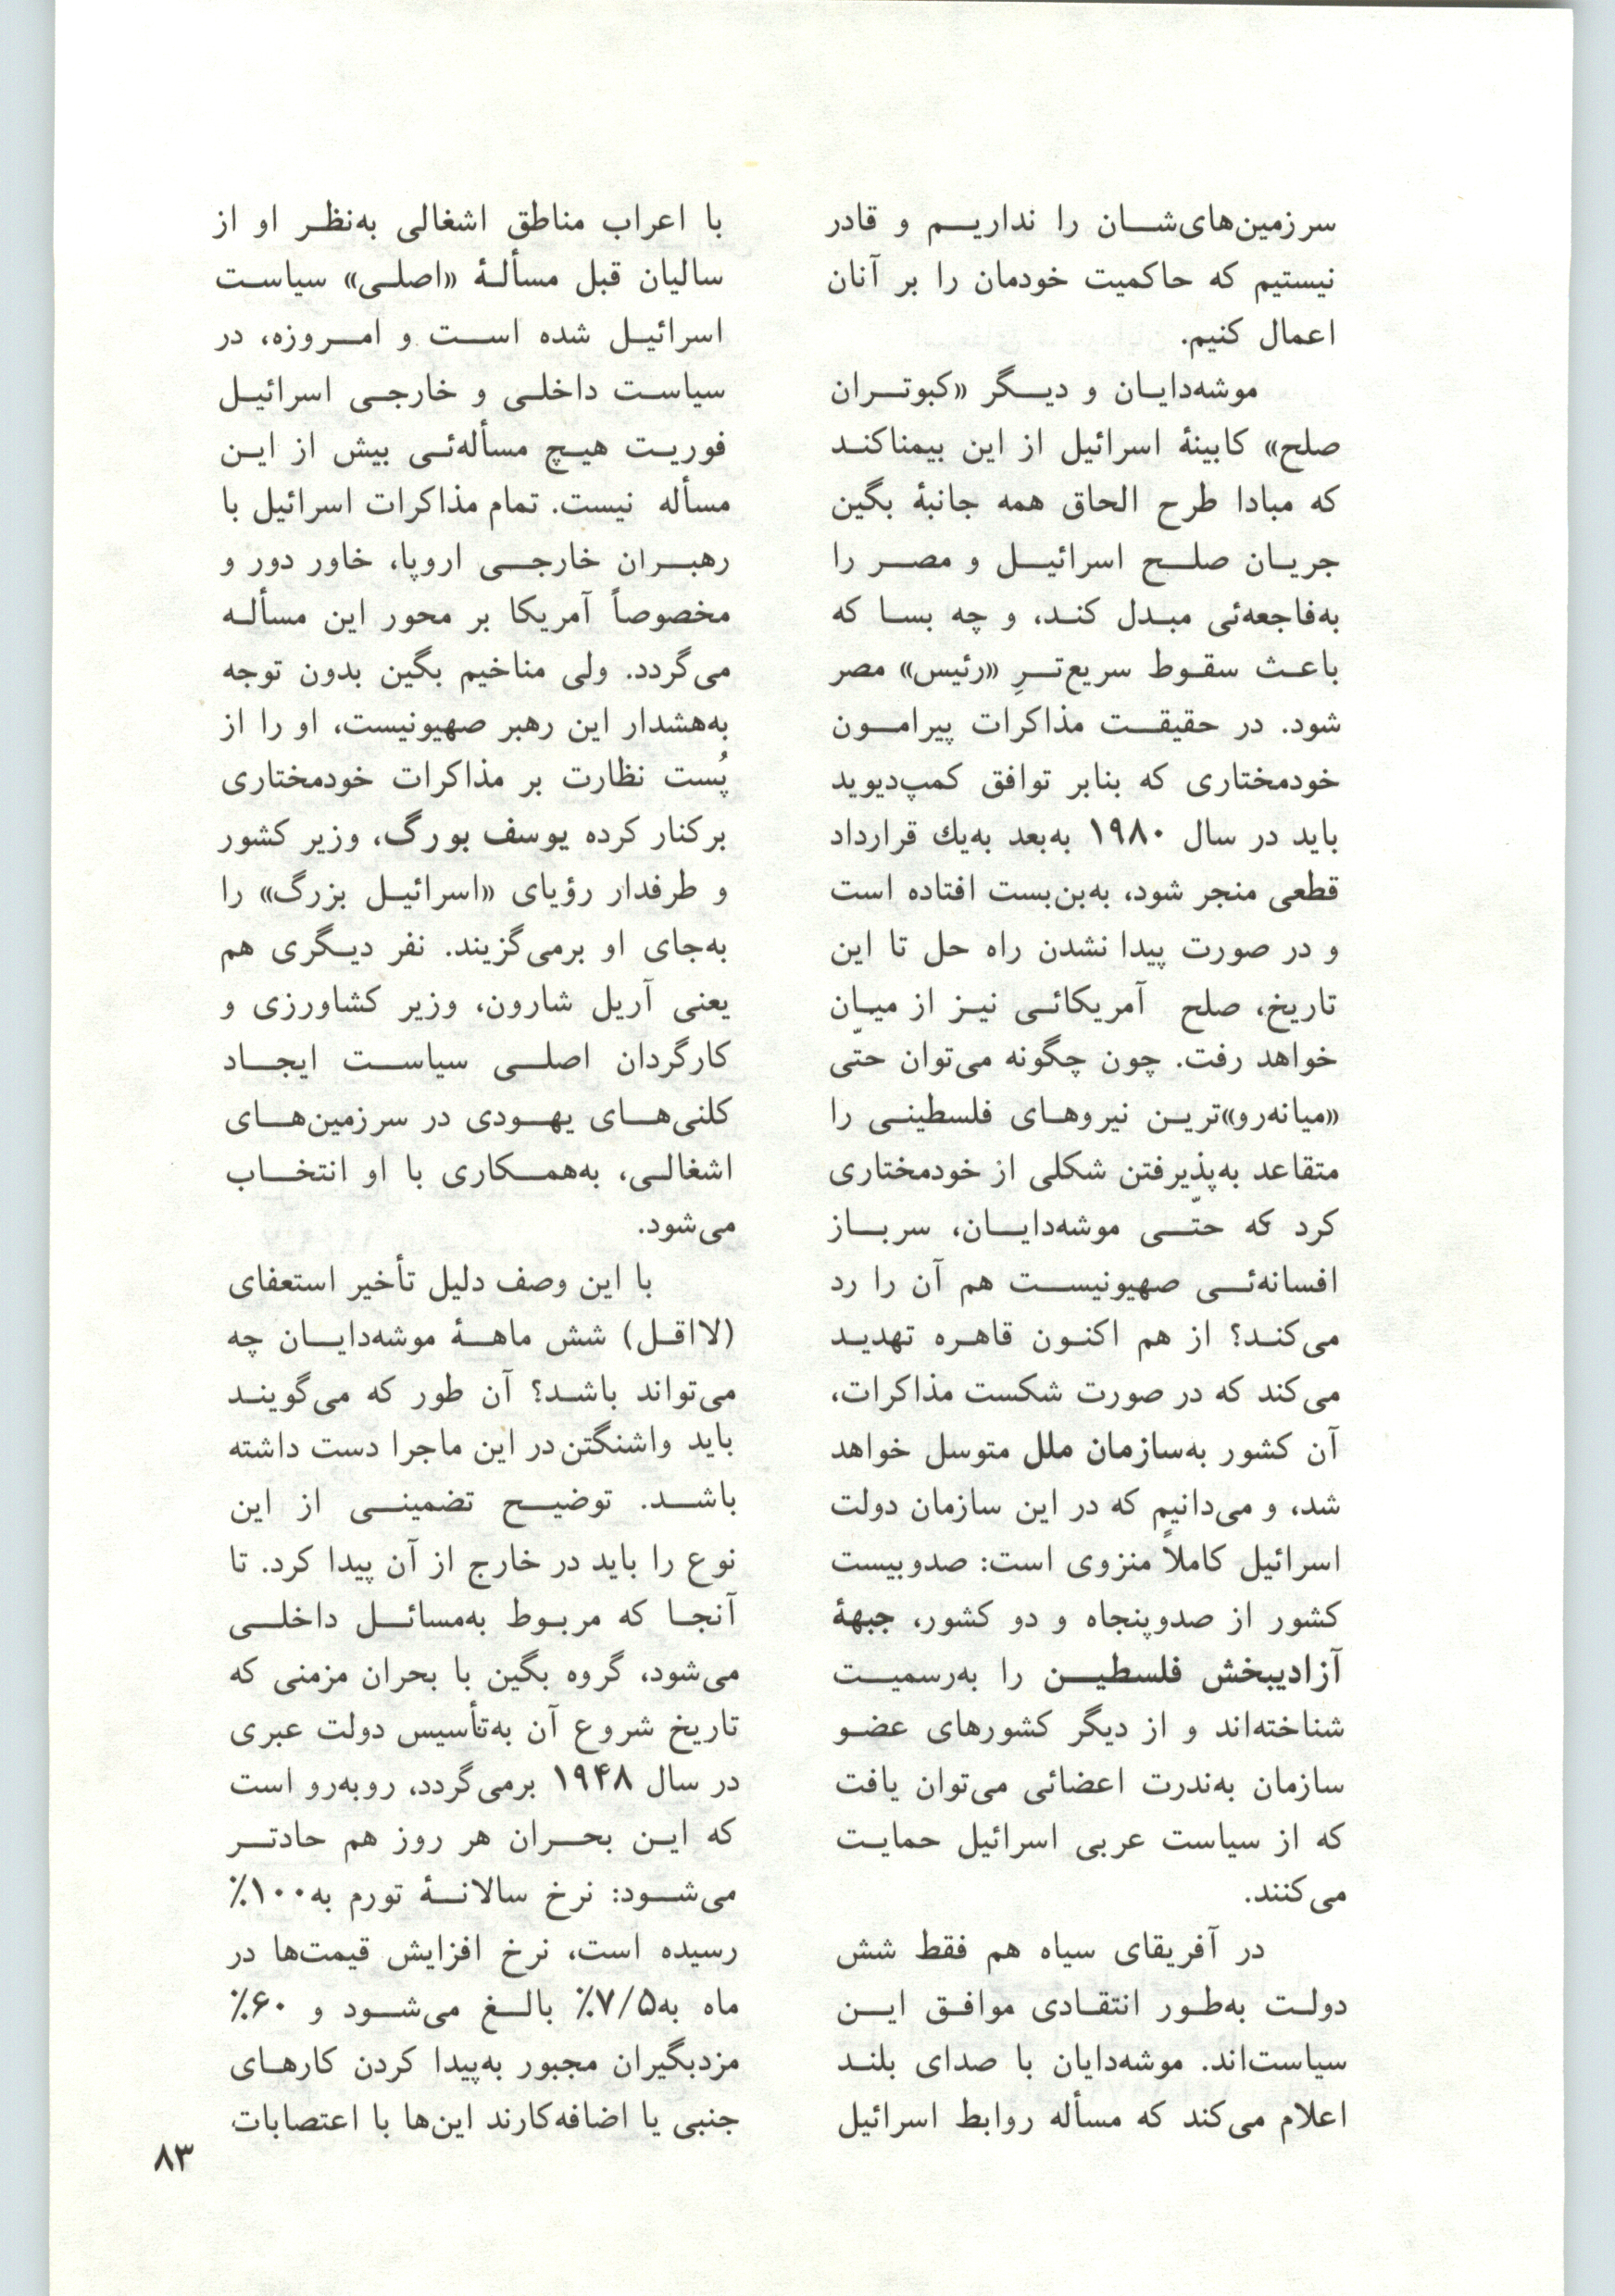 سرزمین‌های‌شان را نداریم و قادر
نیستیم که حاکمیت خودمان را بر آنان
اعمال کنیم.
موشه‌دایان و دیگر «کبوتران
صلح» کابینهٔ اسرائیل از این بیمناکند
که مبادا طرح الحاق همه جانبهٔ بگین
جریان صلح اسرائیل و مصر را
به‌فاجعه‌ئی مبدل کند، و چه بسا که
باعث سقوط سریع‌ترِ «رئیس» مصر
شود. در حقیقت مذاکرات پیرامون
خودمختاری که بنابر توافق کمپ‌دیوید
باید در سال ۱۹۸۰ به‌بعد به‌یك قرارداد
قطعی منجر شود، به‌بن‌بست افتاده است
و در صورت پیدا نشدن راه حل تا این
تاریخ، صلح آمریکائی نیز از میان
خواهد رفت. چون چگونه می‌توان حتّی
«میانه‌رو»ترین نیروهای فلسطینی را
متقاعد به‌پذیرفتن شکلی از خودمختاری
کرد که حتّی موشه‌دایان، سرباز
افسانه‌ئی صهیونیست هم آن را رد
می‌کند؟ از هم اکنون قاهره تهدید
می‌کند که در صورت شکست مذاکرات،
آن کشور به‌سازمان ملل متوسل خواهد
شد، و می‌دانیم که در این سازمان دولت
اسرائیل کاملاً منزوی است: صدوبیست
کشور از صدوپنجاه و دو کشور، جبههٔ
آزادیبخش فلسطین را به‌رسمیت
شناخته‌اند و از دیگر کشورهای عضو
سازمان به‌ندرت اعضائی می‌توان یافت
که از سیاست عربی اسرائیل حمایت
می‌کنند.
در آفریقای سیاه هم فقط شش
دولت به‌طور انتقادی موافق این
سیاست‌اند. موشه‌دایان با صدای بلند
اعلام می‌کند که مسأله روابط اسرائیل
با اعراب مناطق اشغالی به‌نظر او از
سالیان قبل مسألهٔ «اصلی» سیاست
اسرائیل شده است و امروزه، در
سیاست داخلی و خارجی اسرائیل
فوریت هیچ مسأله‌ئی بیش از این
مسأله نیست. تمام مذاکرات اسرائیل با
رهبران خارجی اروپا، خاور دور و
مخصوصاً آمریکا بر محور این مسأله
می‌گردد. ولی مناخیم بگین بدون توجه
به‌هشدار این رهبر صهیونیست، او را از
پُست نظارت بر مذاکرات خودمختاری
برکنار کرده یوسف بورگ، وزیر کشور
و طرفدار رؤیای «اسرائیل بزرگ» را
به‌جای او برمی‌گزیند. نفر دیگری هم
یعنی آریل شارون، وزیر کشاورزی و
کارگردان اصلی سیاست ایجاد
کلنی‌های یهودی در سرزمین‌های
اشغالی، به‌همکاری با او انتخاب
می‌شود.
با این وصف دلیل تأخیر استعفای
(لااقل) شش ماههٔ موشه‌دایان چه
می‌تواند باشد؟ آن طور که می‌گویند
باید واشنگتن در این ماجرا دست داشته
باشد. توضیح تضمینی از این
نوع را باید در خارج از آن پیدا کرد. تا
آنجا که مربوط به‌مسائل داخلی
می‌شود، گروه بگین با بحران مزمنی که
تاریخ شروع آن به‌تأسیس دولت عبری
در سال ۱۹۴۸ برمی‌گردد، روبه‌رو است
که این بحران هر روز هم حادتر
می‌شود: نرخ سالانهٔ تورم به ۱۰۰٪
رسیده است، نرخ افزایش قیمت‌ها در
ماه به ۷/۵٪ بالغ می‌شود و ۶۰٪
مزدبگیران مجبور به‌پیدا کردن کارهای
جنبی یا اضافه‌کارند این‌ها با اعتصابات
۸۳